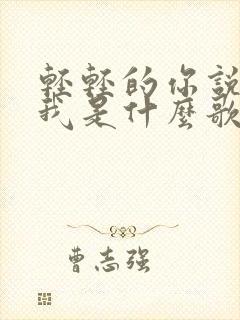 輕輕的你說
我是什麼歌
曹志强